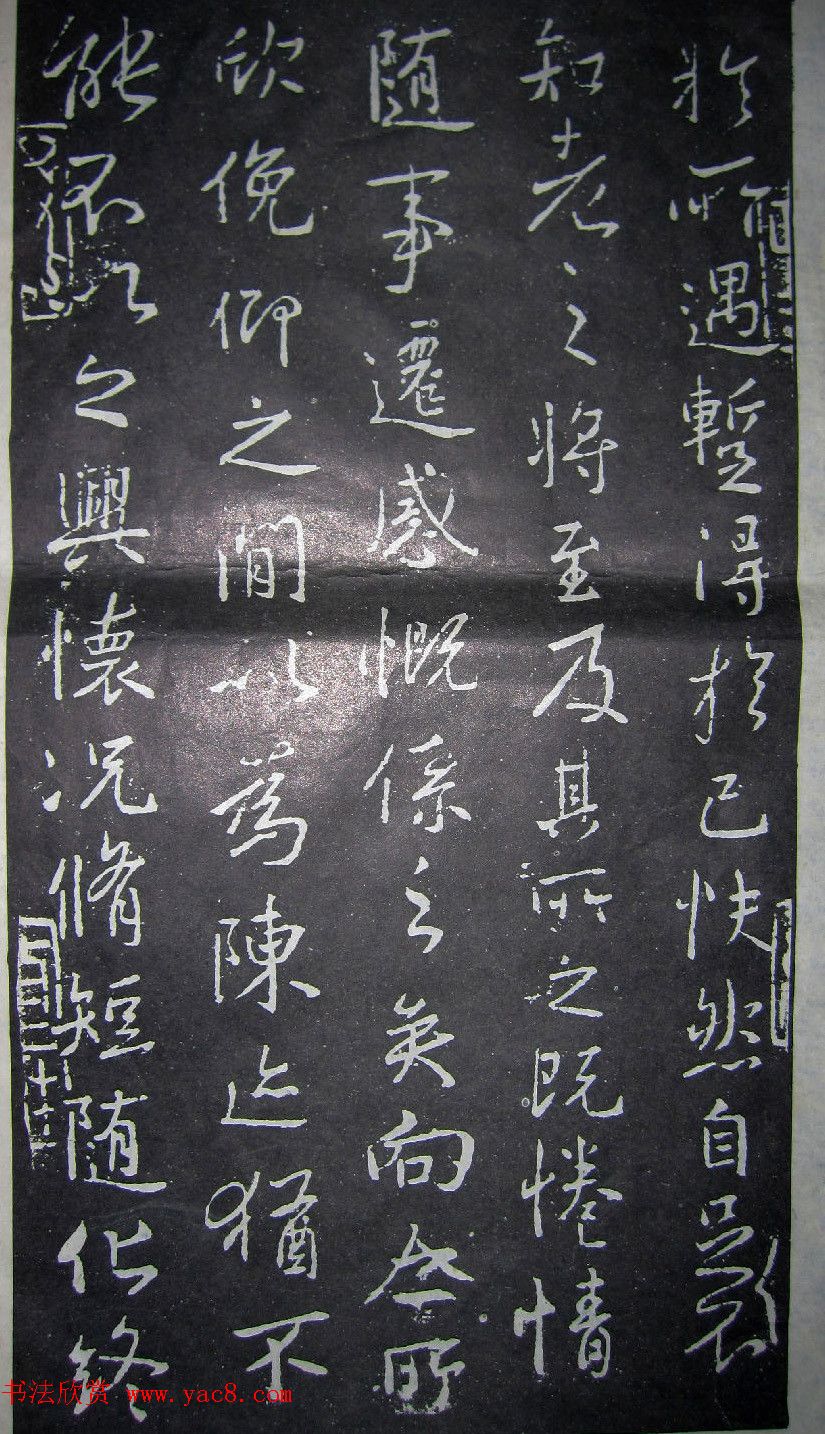 於所遇蹔得於己快然自足不
知老之將至及其所之既惓情
隨事遷感慨係之矣向之所
欣俛仰之間以為陳迹猶不
能不以之興懷况脩短隨化終
书法欣赏 www.yac8.com